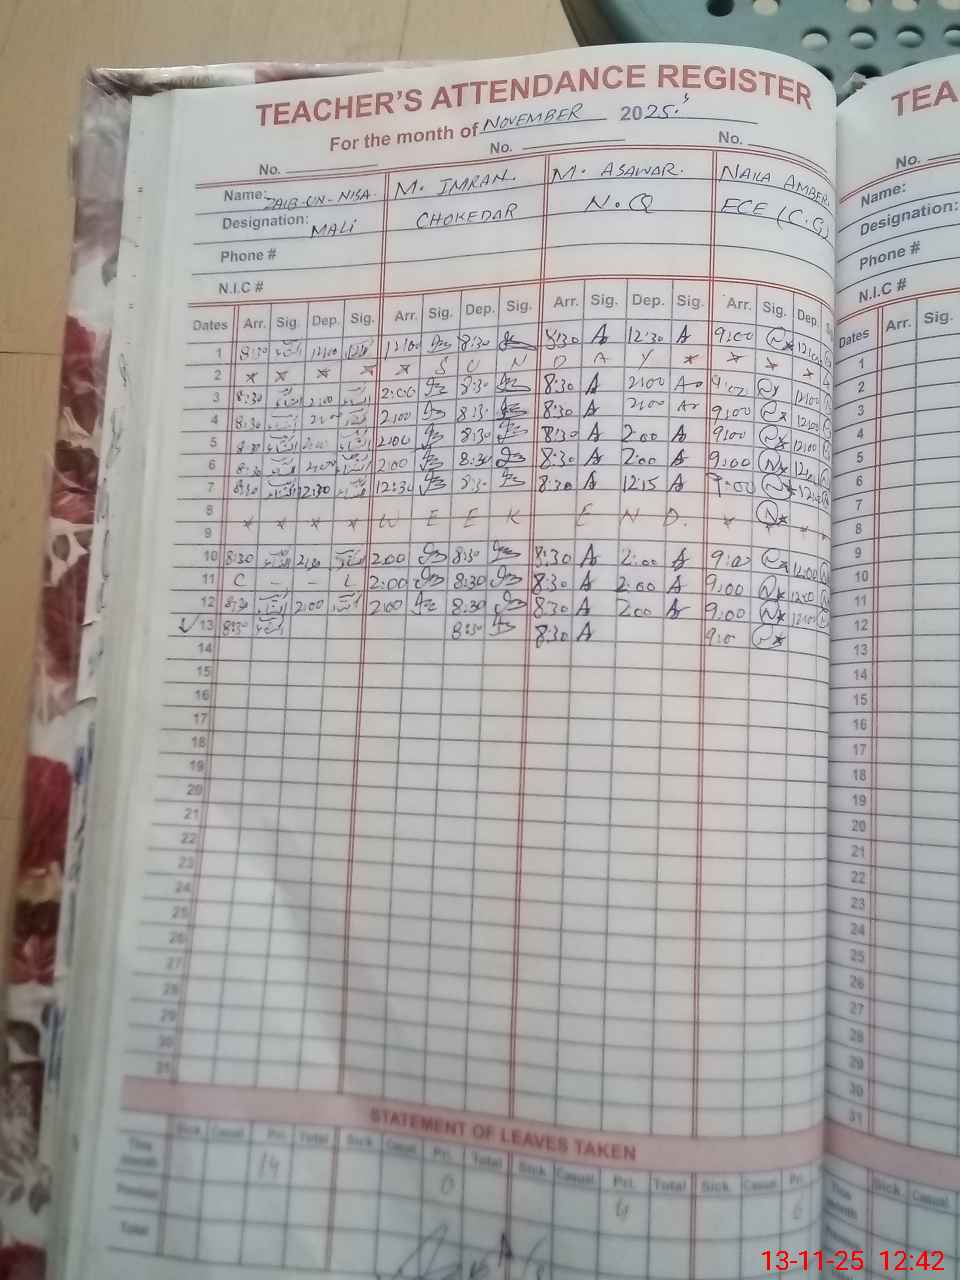 TEACHER'S ATTENDANCE REGISTER
For the month of NOVEMBER 2025
No. No. No.
Name: ZAIB-UN-NISA. M. IMRAN. M. ASAWAR. NAILA AMBER
Designation: MALI CHOKEDAR N.Q ECE (C.G)
Phone #
N.I.C #
Dates Arr. Sig. Dep. Sig. Arr. Sig. Dep. Sig. Arr. Sig. Dep. Sig. Arr. Sig. Dep.
1 8:30 12:00 12:00 8:30 8:30 A 12:30 A 9:00
2 * * * * * S U N D A Y * * * *
3 8:30 2:00 2:00 8:30 8:30 A 2:00 A 9:00 12:00
4 8:30 2:00 2:00 8:30 8:30 A 2:00 A 9:00 12:00
5 8:30 2:00 2:00 8:30 8:30 A 2:00 A 9:00 12:00
6 8:30 2:00 2:00 8:30 8:30 A 2:00 A 9:00
7 8:30 12:30 12:30 8:30 8:30 A 12:15 A 9:00
8
9 * * * * W E E K E N D. * * * *
10 8:30 2:00 2:00 8:30 8:30 A 2:00 A 9:00 12:00
11 C - - L 2:00 8:30 8:30 A 2:00 A 9:00 12:00
12 8:30 2:00 2:00 8:30 8:30 A 2:00 A 9:00 12:00
13 8:30 8:30 8:30 A 9:0
14
15
16
17
18
19
20
21
22
23
24
25
26
27
28
29
30
31
STATEMENT OF LEAVES TAKEN
Sick. Casual. Pri. Total Sick. Casual. Pri. Total Sick. Casual. Pri. Total Sick. Casual. Pri.
This Month 14 0 6
Previous
Total
TEA
No.
Name:
Designation:
Phone #
N.I.C #
Dates Arr. Sig.
1
2
3
4
5
6
7
8
9
10
11
12
13
14
15
16
17
18
19
20
21
22
23
24
25
26
27
28
29
30
31
Sick. Casual.
This Month
Previous
Total
13-11-25 12:42